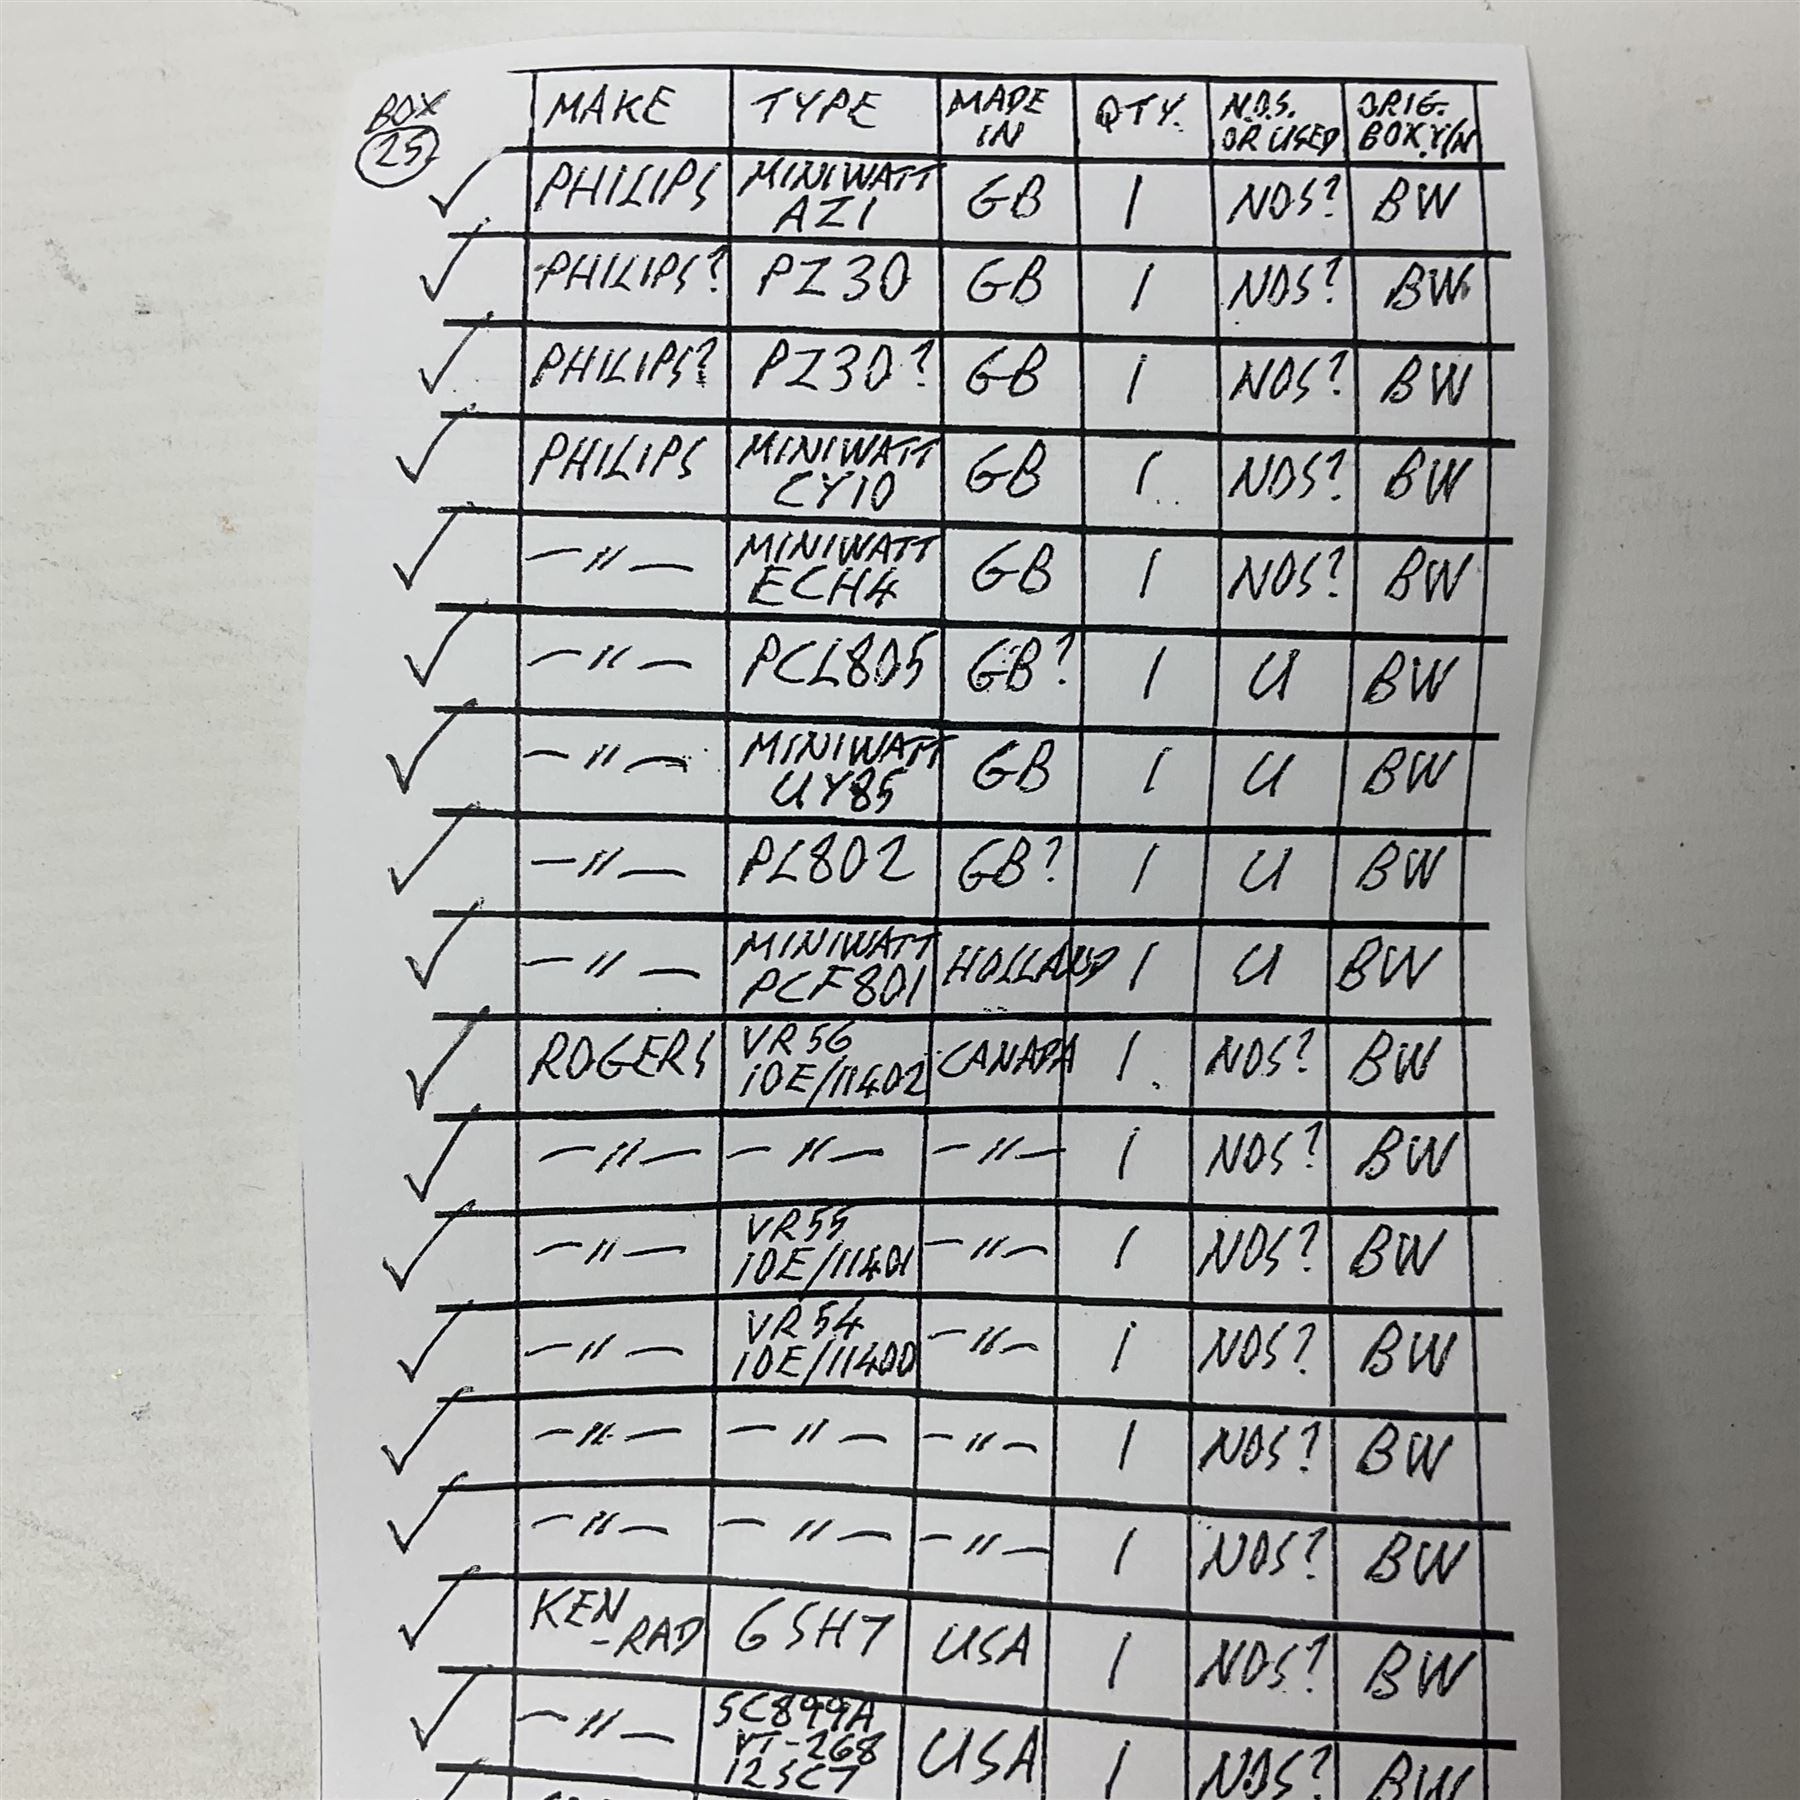 BOX 25 MAKE TYPE MADE IN QTY. N.O.S. OR USED ORIG. BOX Y/N
✓ PHILIPS MINIWATT AZ1 GB 1 NOS? BW
✓ PHILIPS? PZ30 GB 1 NOS? BW
✓ PHILIPS? PZ30? GB 1 NOS? BW
✓ PHILIPS MINIWATT CY10 GB 1 NOS? BW
✓ —〃— MINIWATT ECH4 GB 1 NOS? BW
✓ —〃— PCL805 GB? 1 U BW
✓ —〃— MINIWATT UY85 GB 1 U BW
✓ —〃— PL802 GB? 1 U BW
✓ —〃— MINIWATT PCF801 HOLLAND 1 U BW
✓ ROGERS VR56 10E/11402 CANADA 1 NOS? BW
✓ —〃— —〃— —〃— 1 NOS? BW
✓ —〃— VR55 10E/11401 —〃— 1 NOS? BW
✓ —〃— VR54 10E/11400 —〃— 1 NOS? BW
✓ —〃— —〃— —〃— 1 NOS? BW
✓ —〃— —〃— —〃— 1 NOS? BW
✓ KEN-RAD 6SH7 USA 1 NOS? BW
✓ —〃— SC899A VT-268 12SC7 USA 1 NOS? BW